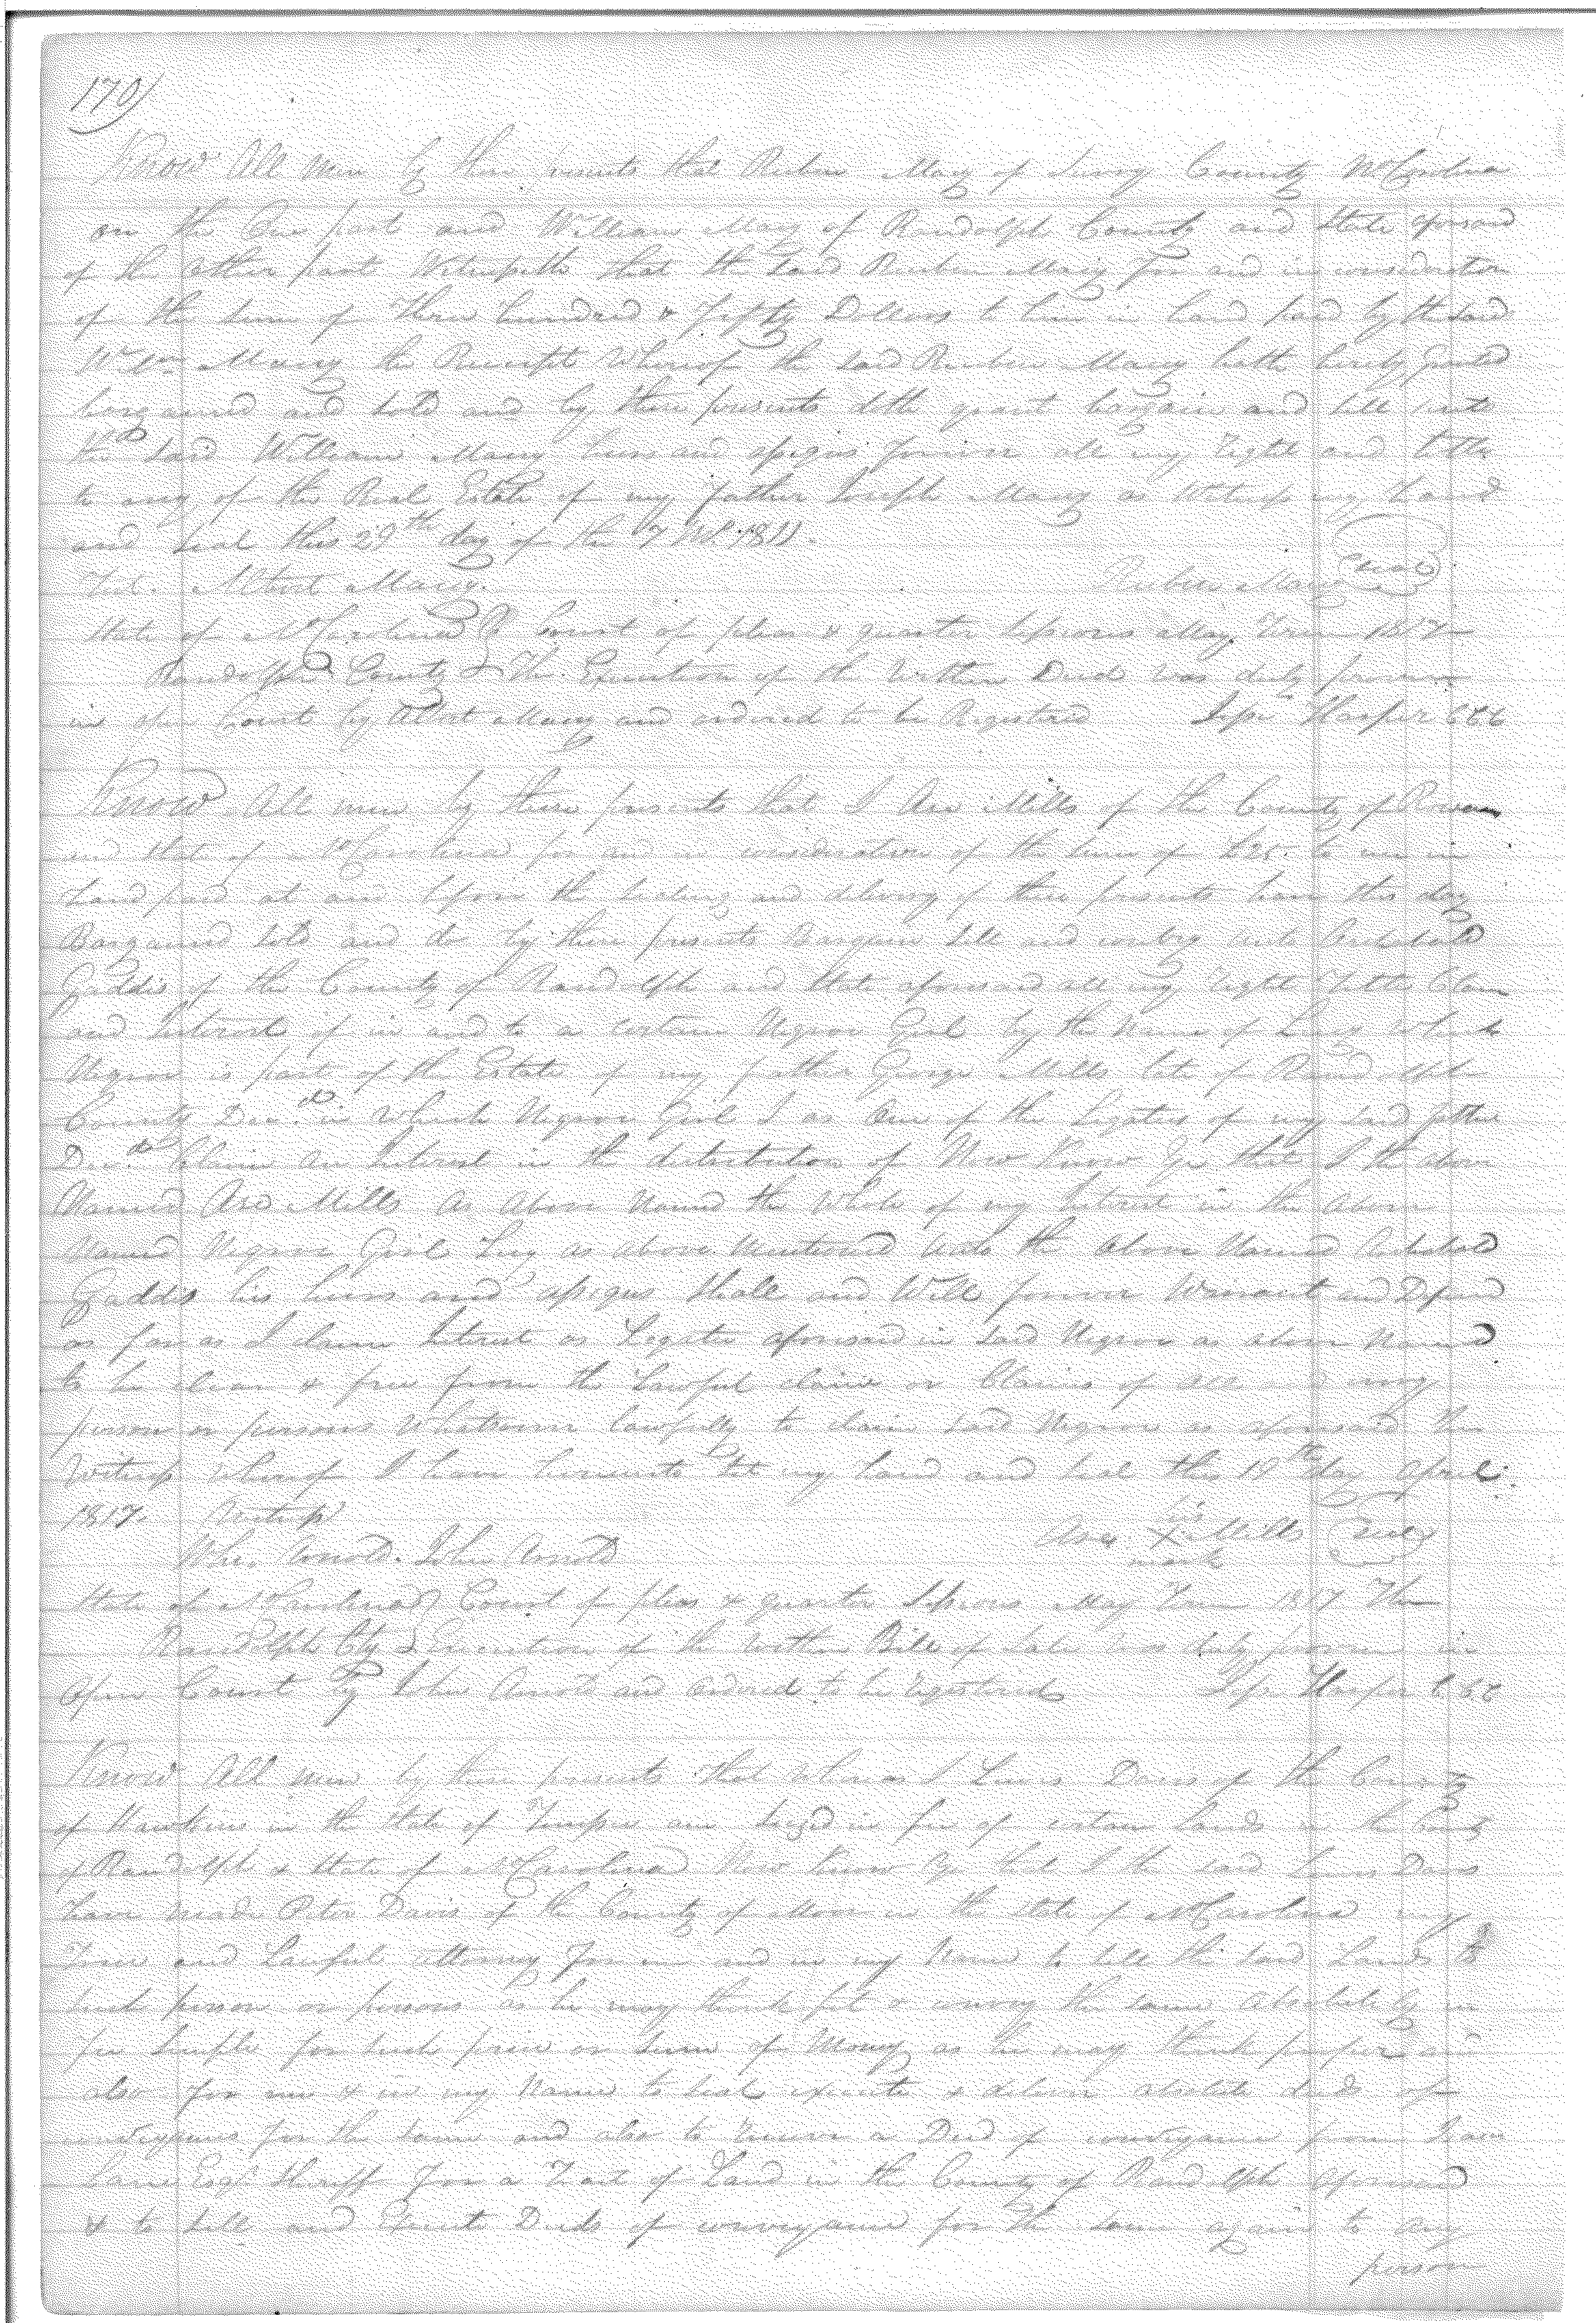 170
Know All Men by these presents that Reuben Many of Surry County N Carolina
on the One part and William Many of Randolph County and State aforesaid
of the other part Witnesseth that the said Reuben Many for and in consideration
of the sum of Three hundred & Fifty Dollars to him in hand paid by the said
Wm Many the Receipt Whereof the said Reuben Many hath hereby granted
bargained and sold and by these presents doth grant bargain and sell unto
the said William Many heirs and assigns forever all my right and title
to any of the Real Estate of my father Joseph Many as Witness my hand
and seal this 29th day of the 7 Mo 1811.
Test. Albert Many. Reuben Many (seal)
State of N Carolina } Court of pleas & quarter Sessions May Term 1817
Randolph County } The Execution of the within Deed was duly proven
in open Court by Albert Many and ordered to be Registered Jesse Harper CCC
Know All men by these presents that I Asa Mills of the County of Rowan
and State of N Carolina for and in consideration of the sum of £25 to me in
hand paid at and Upon the sealing and delivery of these presents have this day
Bargained sold and do by these presents Bargain sell and convey unto Archibald
Gaddis of the County of Randolph and State aforesaid all my right Title Claim
and Interest of in and to a certain Negroe Girl by the Name of Lucy Which
Negroe is part of the Estate of my father George Mills late of Randolph
County Decd. in Which Negroe Girl I as One of the Legatees of my said father
Decd. Claim an Interest in the distribution of Now Know Ye that I the above
Named Asa Mills As Above Named the Whole of my Interest in the above
Named Negroe Girl Lucy as above Mentioned Unto the above Named Archibald
Gaddis his heirs and assigns shall and Will forever Warrant and Defend
as far as I claim Interest as Legatee aforesaid in said Negroe as above Named
to be clear & free from the Lawful claim or Claims of all and any
person or persons Whatsoever lawfully to claim said Negroe as aforesaid In
Witness whereof I have hereunto set my hand and seal this 19th day April
1817. Witness his
Whr. Arnold. John Arnold Asa X Mills (seal)
mark
State of N Carolina } Court of pleas & quarter Sessions May Term 1817 The
Randolph Cty } Execution of the within Bill of Sale was duly proven in
Open Court by John Arnold and Ordered to be registered Jesse Harper CCC
Know All Men by these presents that Whereas I Lewis Davis of the County
of Hawkins in the State of Tennessee am Seized in fee of certain lands in the County
of Randolph & State of N Carolina Now Know Ye that I the said Lewis Davis
have made Peter Davis of the County of Moore in the State of N Carolina my
True and Lawful Attorney for me and in my Name to sell the said Lands to
such person or persons as he may think fit & convey the same absolutely in
fee simple for such price or sum of Money as he may think proper and
also for me & in my Name to seal execute & deliver absolute deeds of
conveyance for the same and also to receive a Deed of conveyance from Isaac
Lane Esqr Sheriff for a Tract of Land in the County of Randolph Aforesaid
& to sell and Execute Deeds of conveyance for the same again to any
person